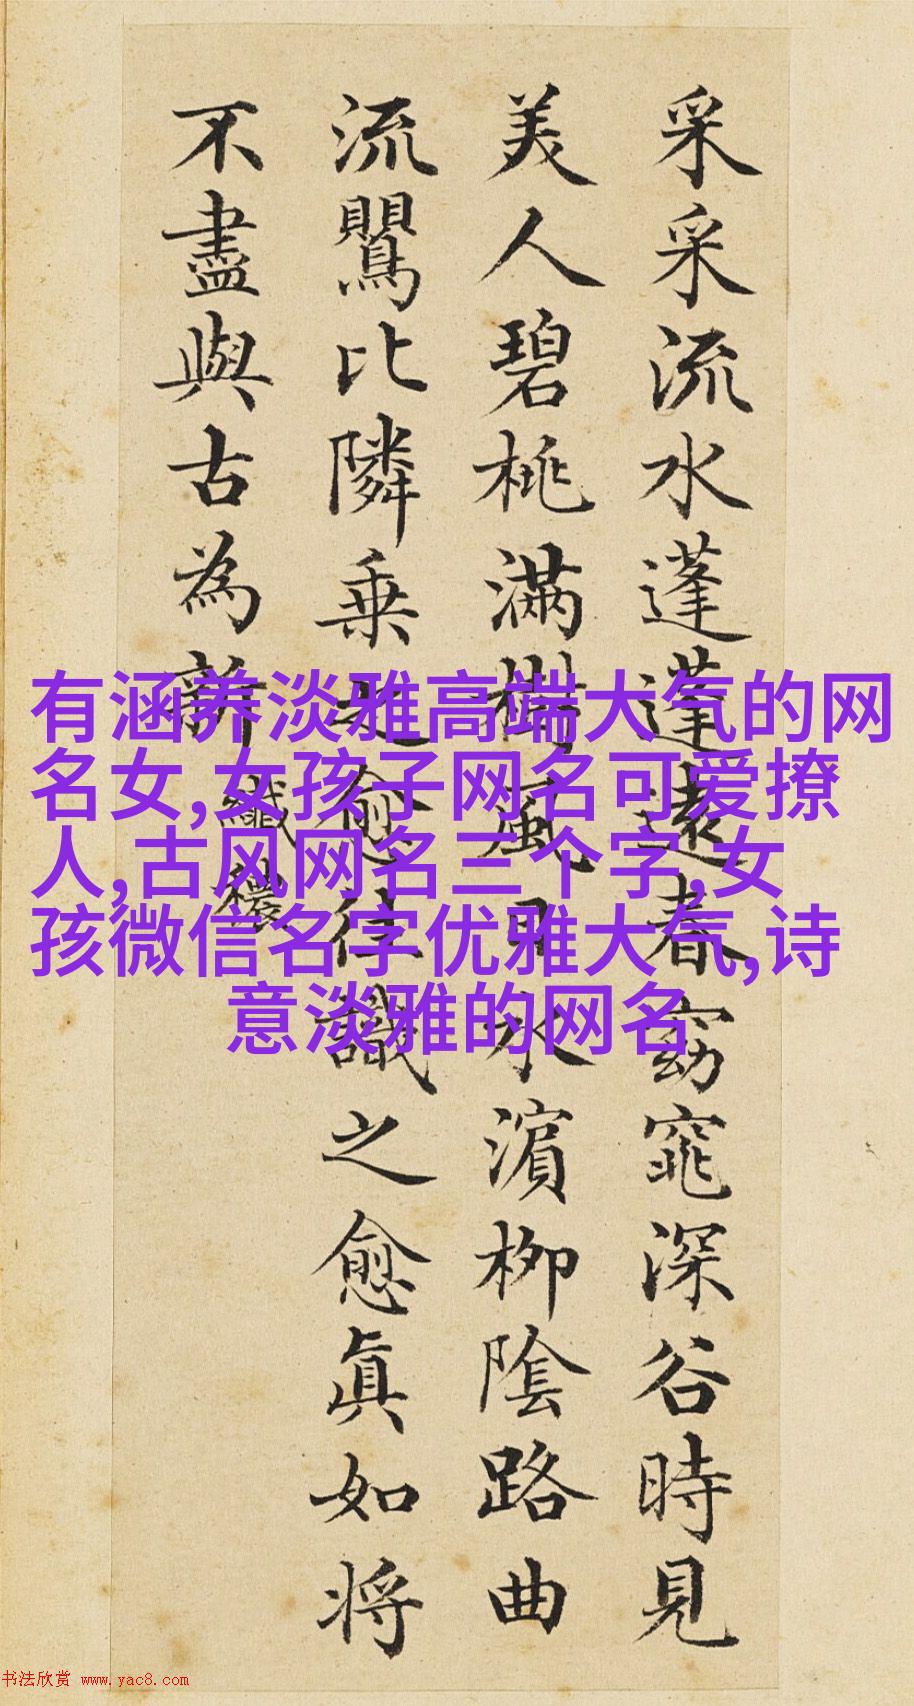 采采流水蓬蓬遠春窈窕深谷時見
美人碧桃滿樹風日水濱柳隂路曲
流鸎比隣乗之愈往識之愈眞如将
不盡與古為新
纖穠
有涵养淡雅高端大气的网
名女,女孩子网名可爱撩
人,古风网名三个字,女
孩微信名字优雅大气,诗
意淡雅的网名
书法欣赏 www.yac8.com